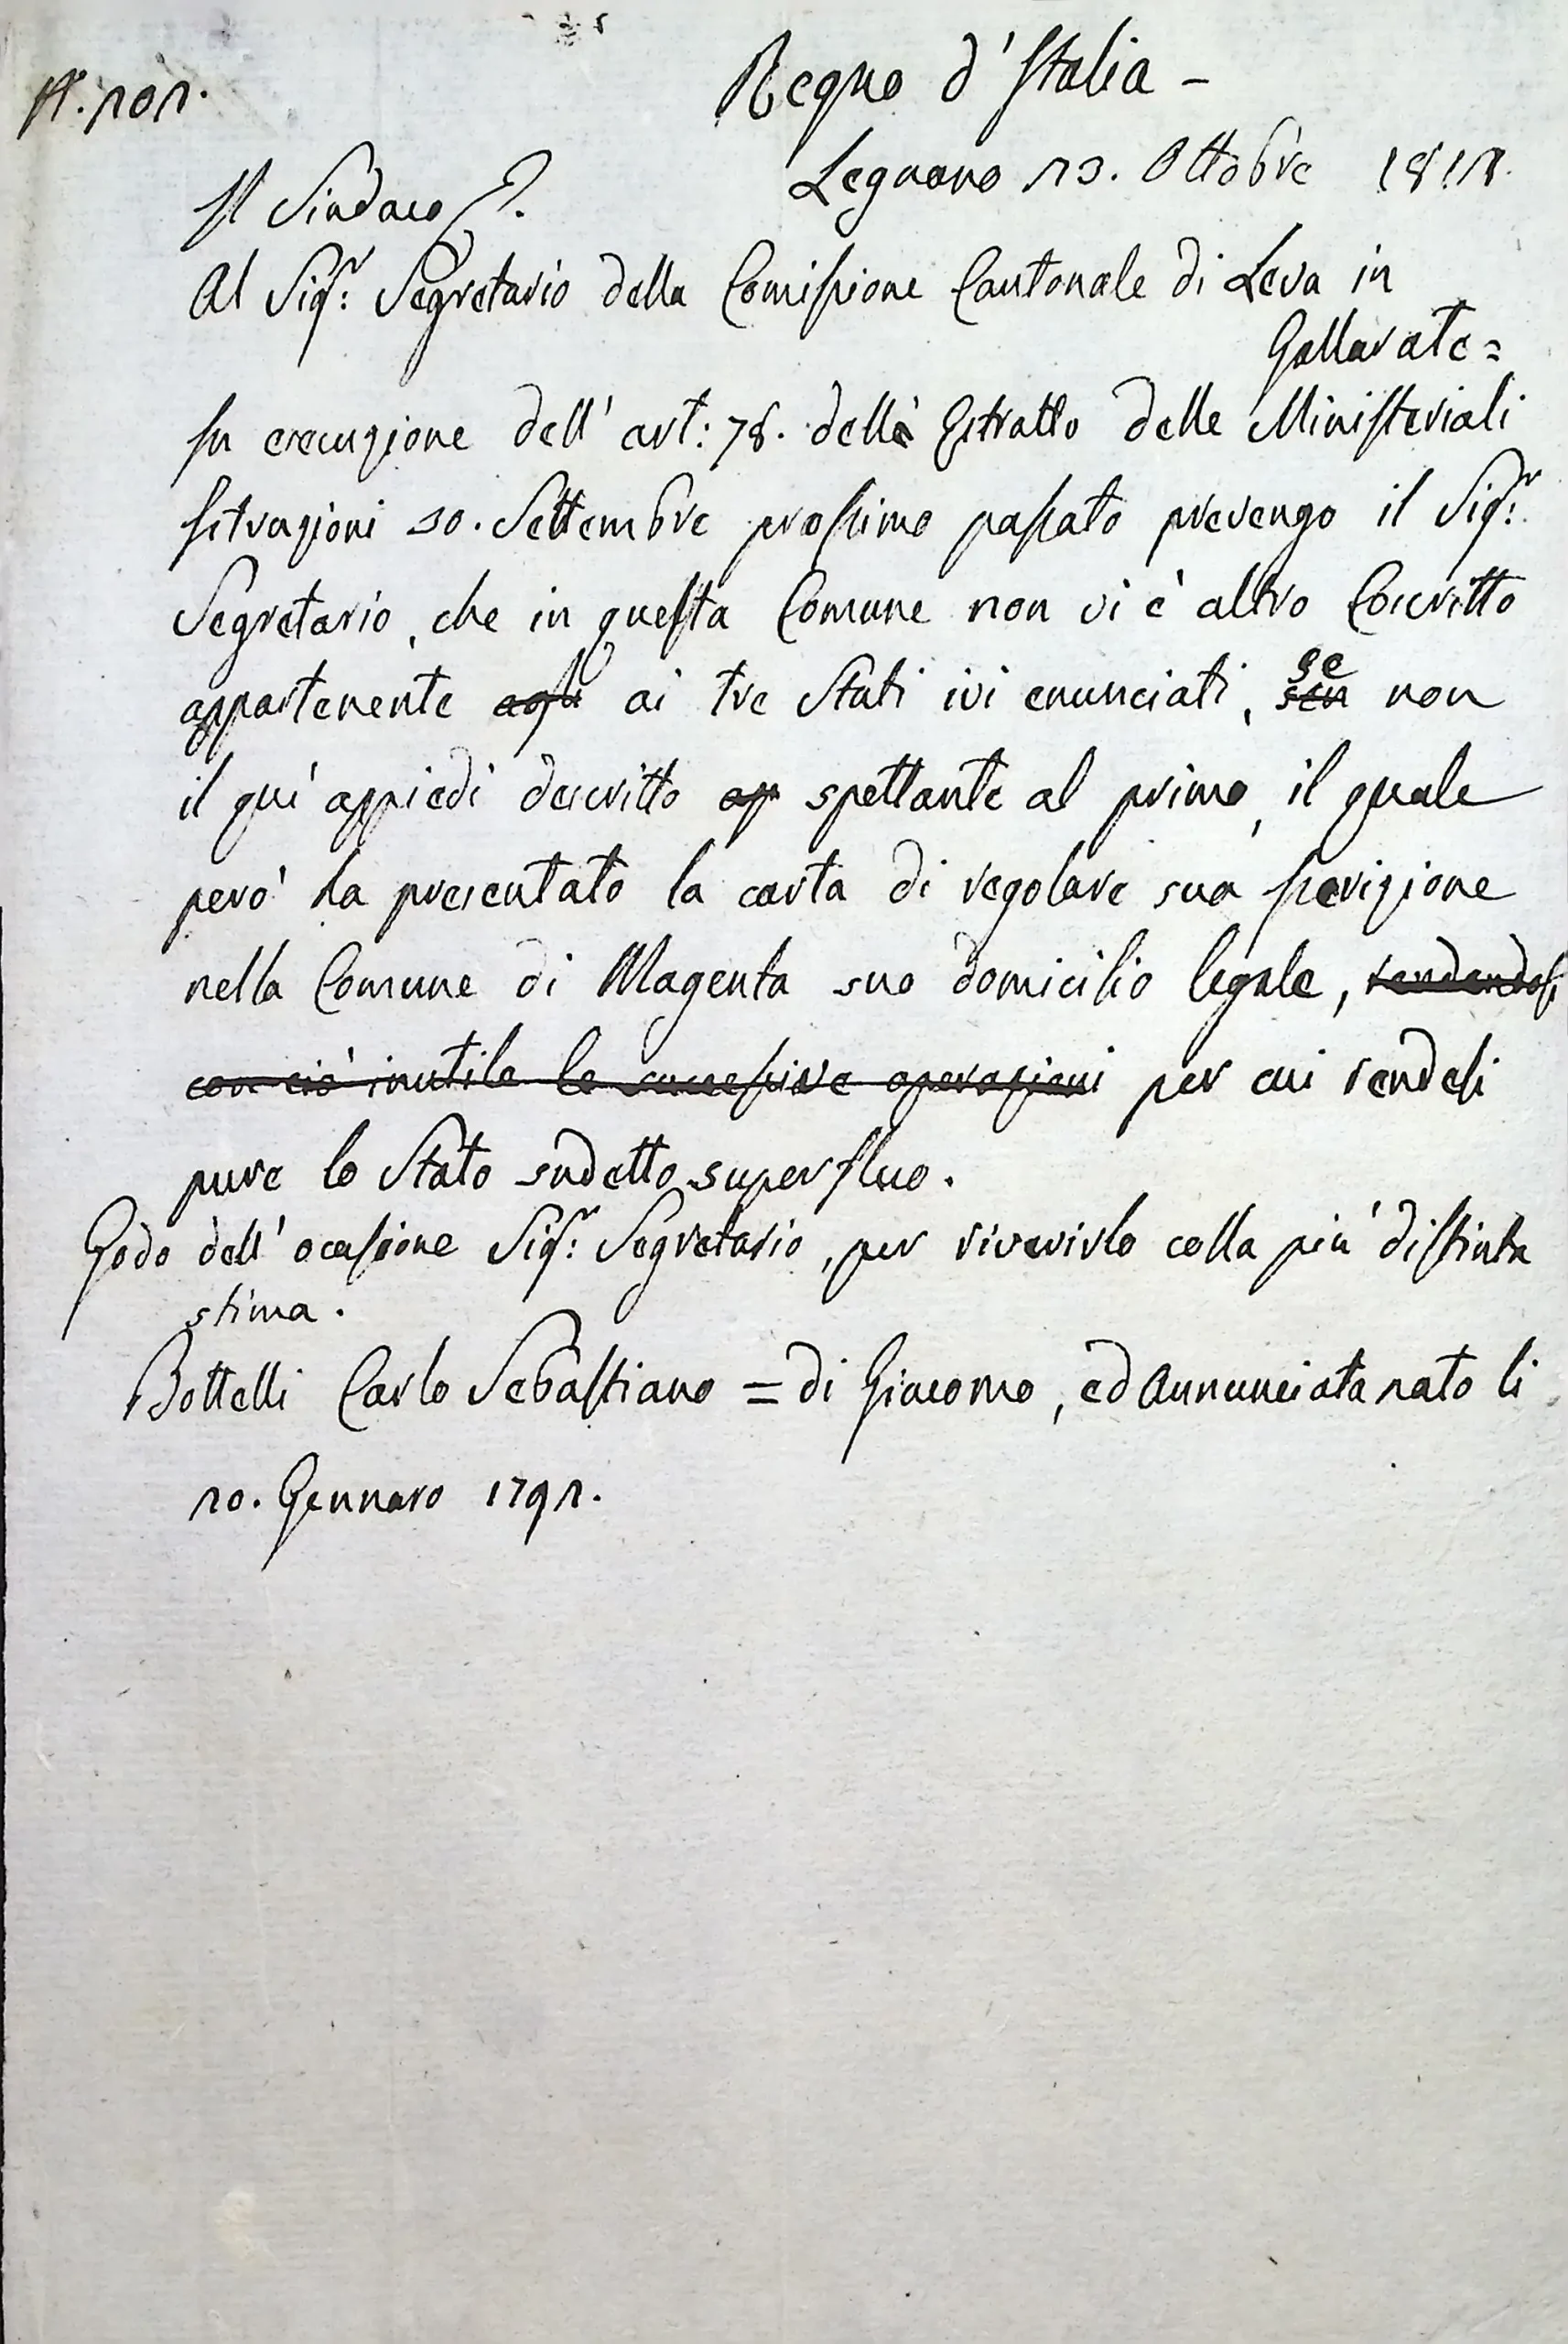 N.° 202.
Regno d'Italia -
Legnano 23. Ottobre 1812.
Il Sindaco
Al Sigr: Segretario della Comissione Cantonale di Leva in
Gallarate=
In esecuzione dell' art: 78. dell' Estratto delle Ministeriali
Istruzioni 30. Settembre prossimo passato prevengo il Sigr:
Segretario, che in questa Comune non vi è altro Coscritto
appartenente agli ai tre Stati ivi enunciati, sen se non
il quì appiedi descritto ap spettante al primo, il quale
però ha presentato la carta di regolare sua Iscrizione
nella Comune di Magenta suo domicilio legale, rendendosi
con ciò inutile le successive operazioni per cui rendesi
pure lo Stato sudetto superfluo.
Godo dell' ocasione Sigr: Segretario, per riverirlo colla più distinta
stima.
Bottelli Carlo Sebastiano = di Giacomo, ed Annunciata nato li
20. Gennaro 1792.